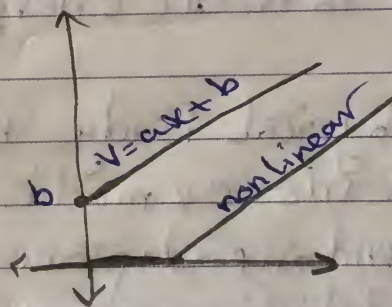 v=ax+b
b
nonlinear